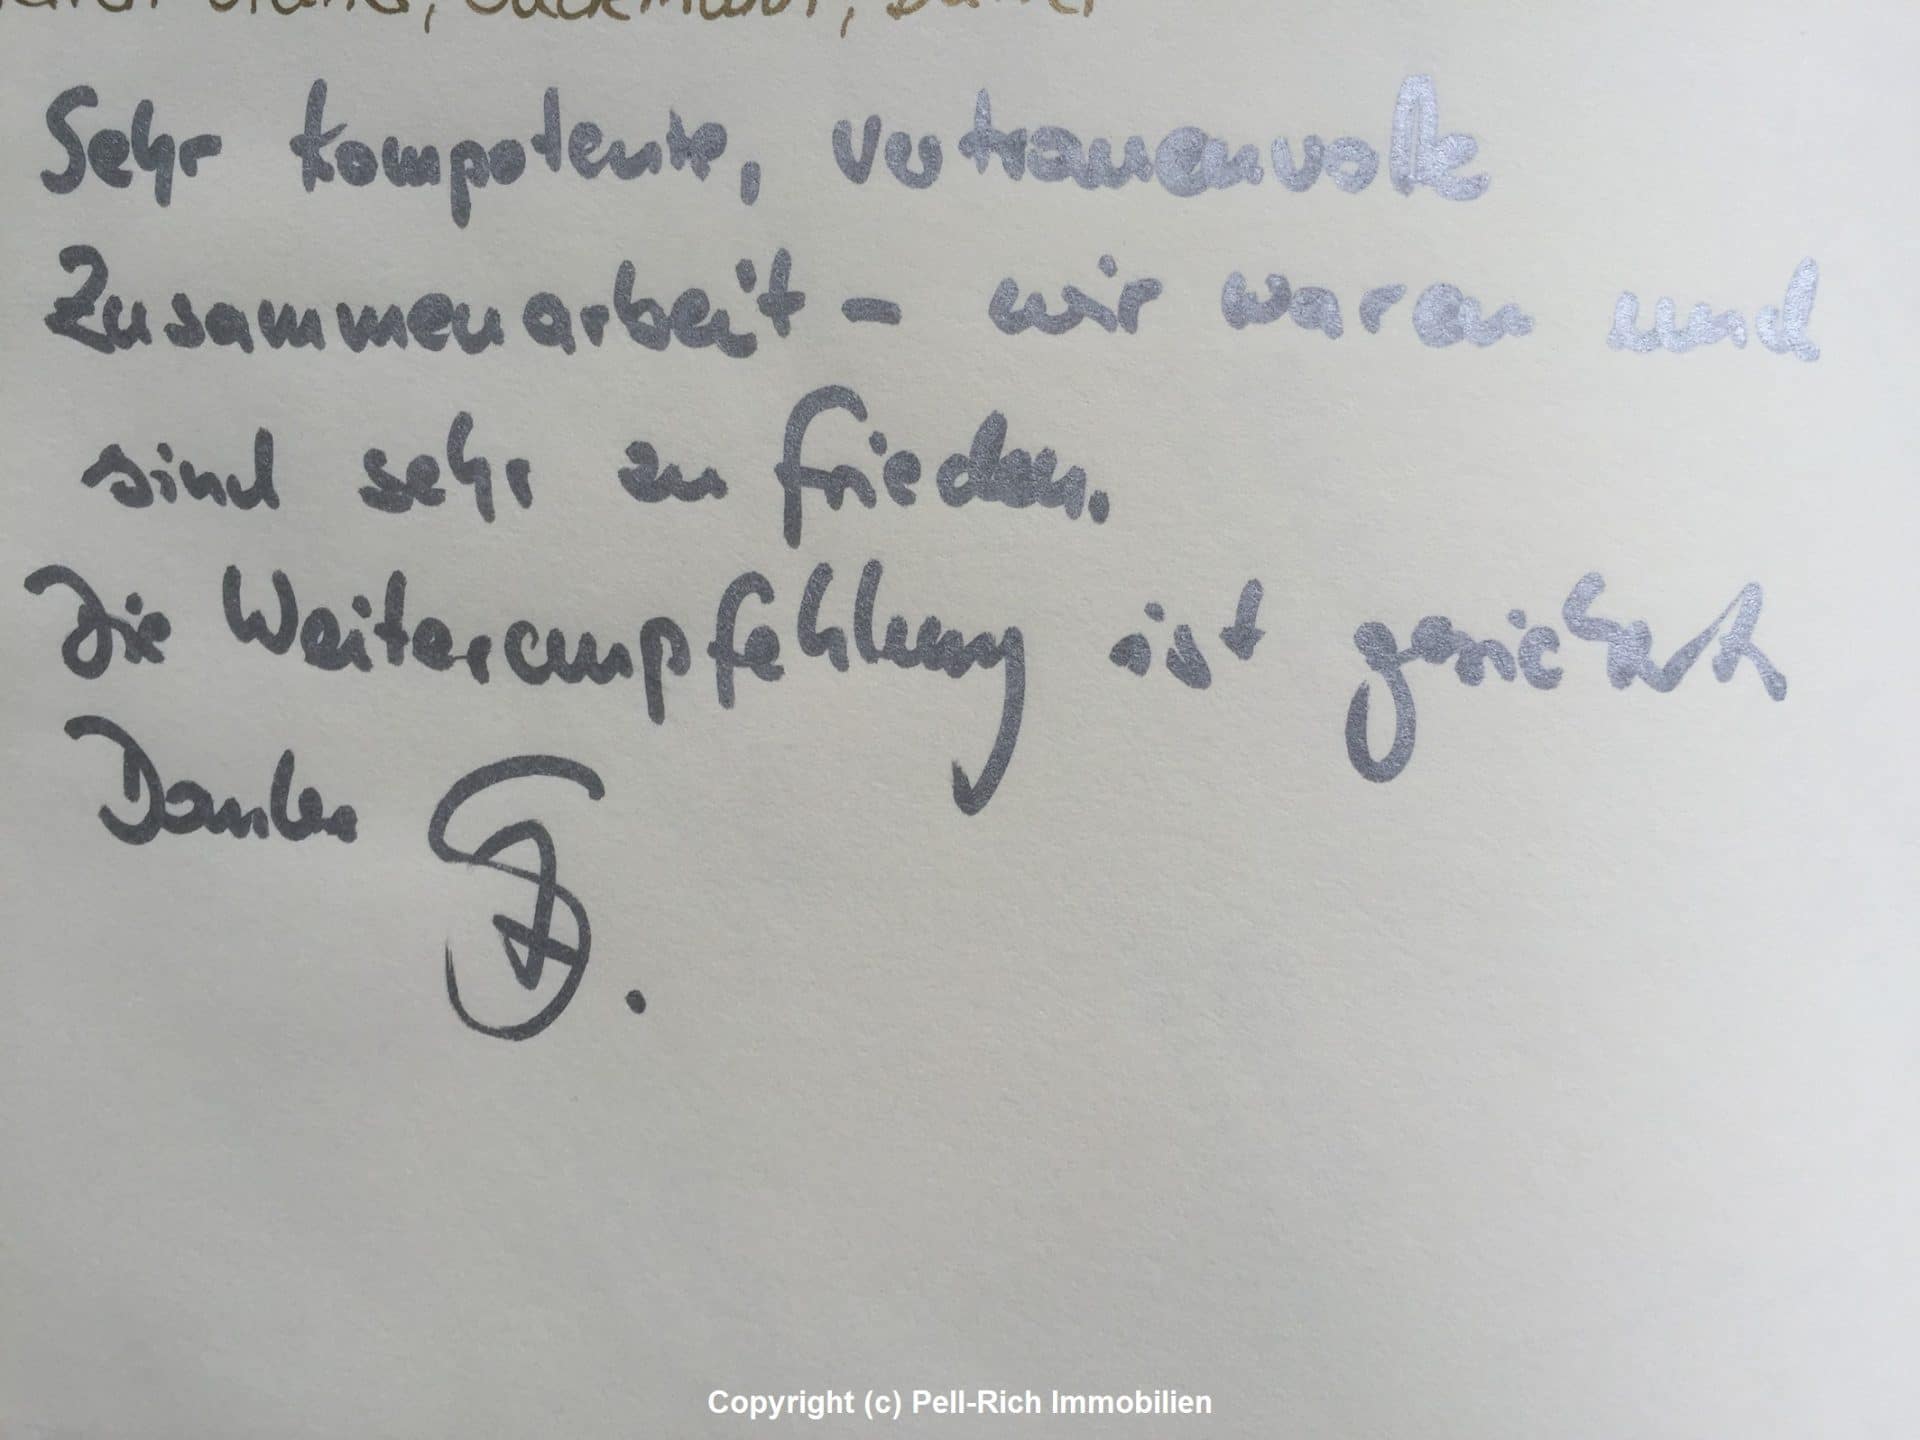 Sehr kompetente, vertrauensvolle
Zusammenarbeit - wir waren und
sind sehr zu frieden.
Die Weiterempfehlung ist gesichert
Danke
Copyright (c) Pell-Rich Immobilien